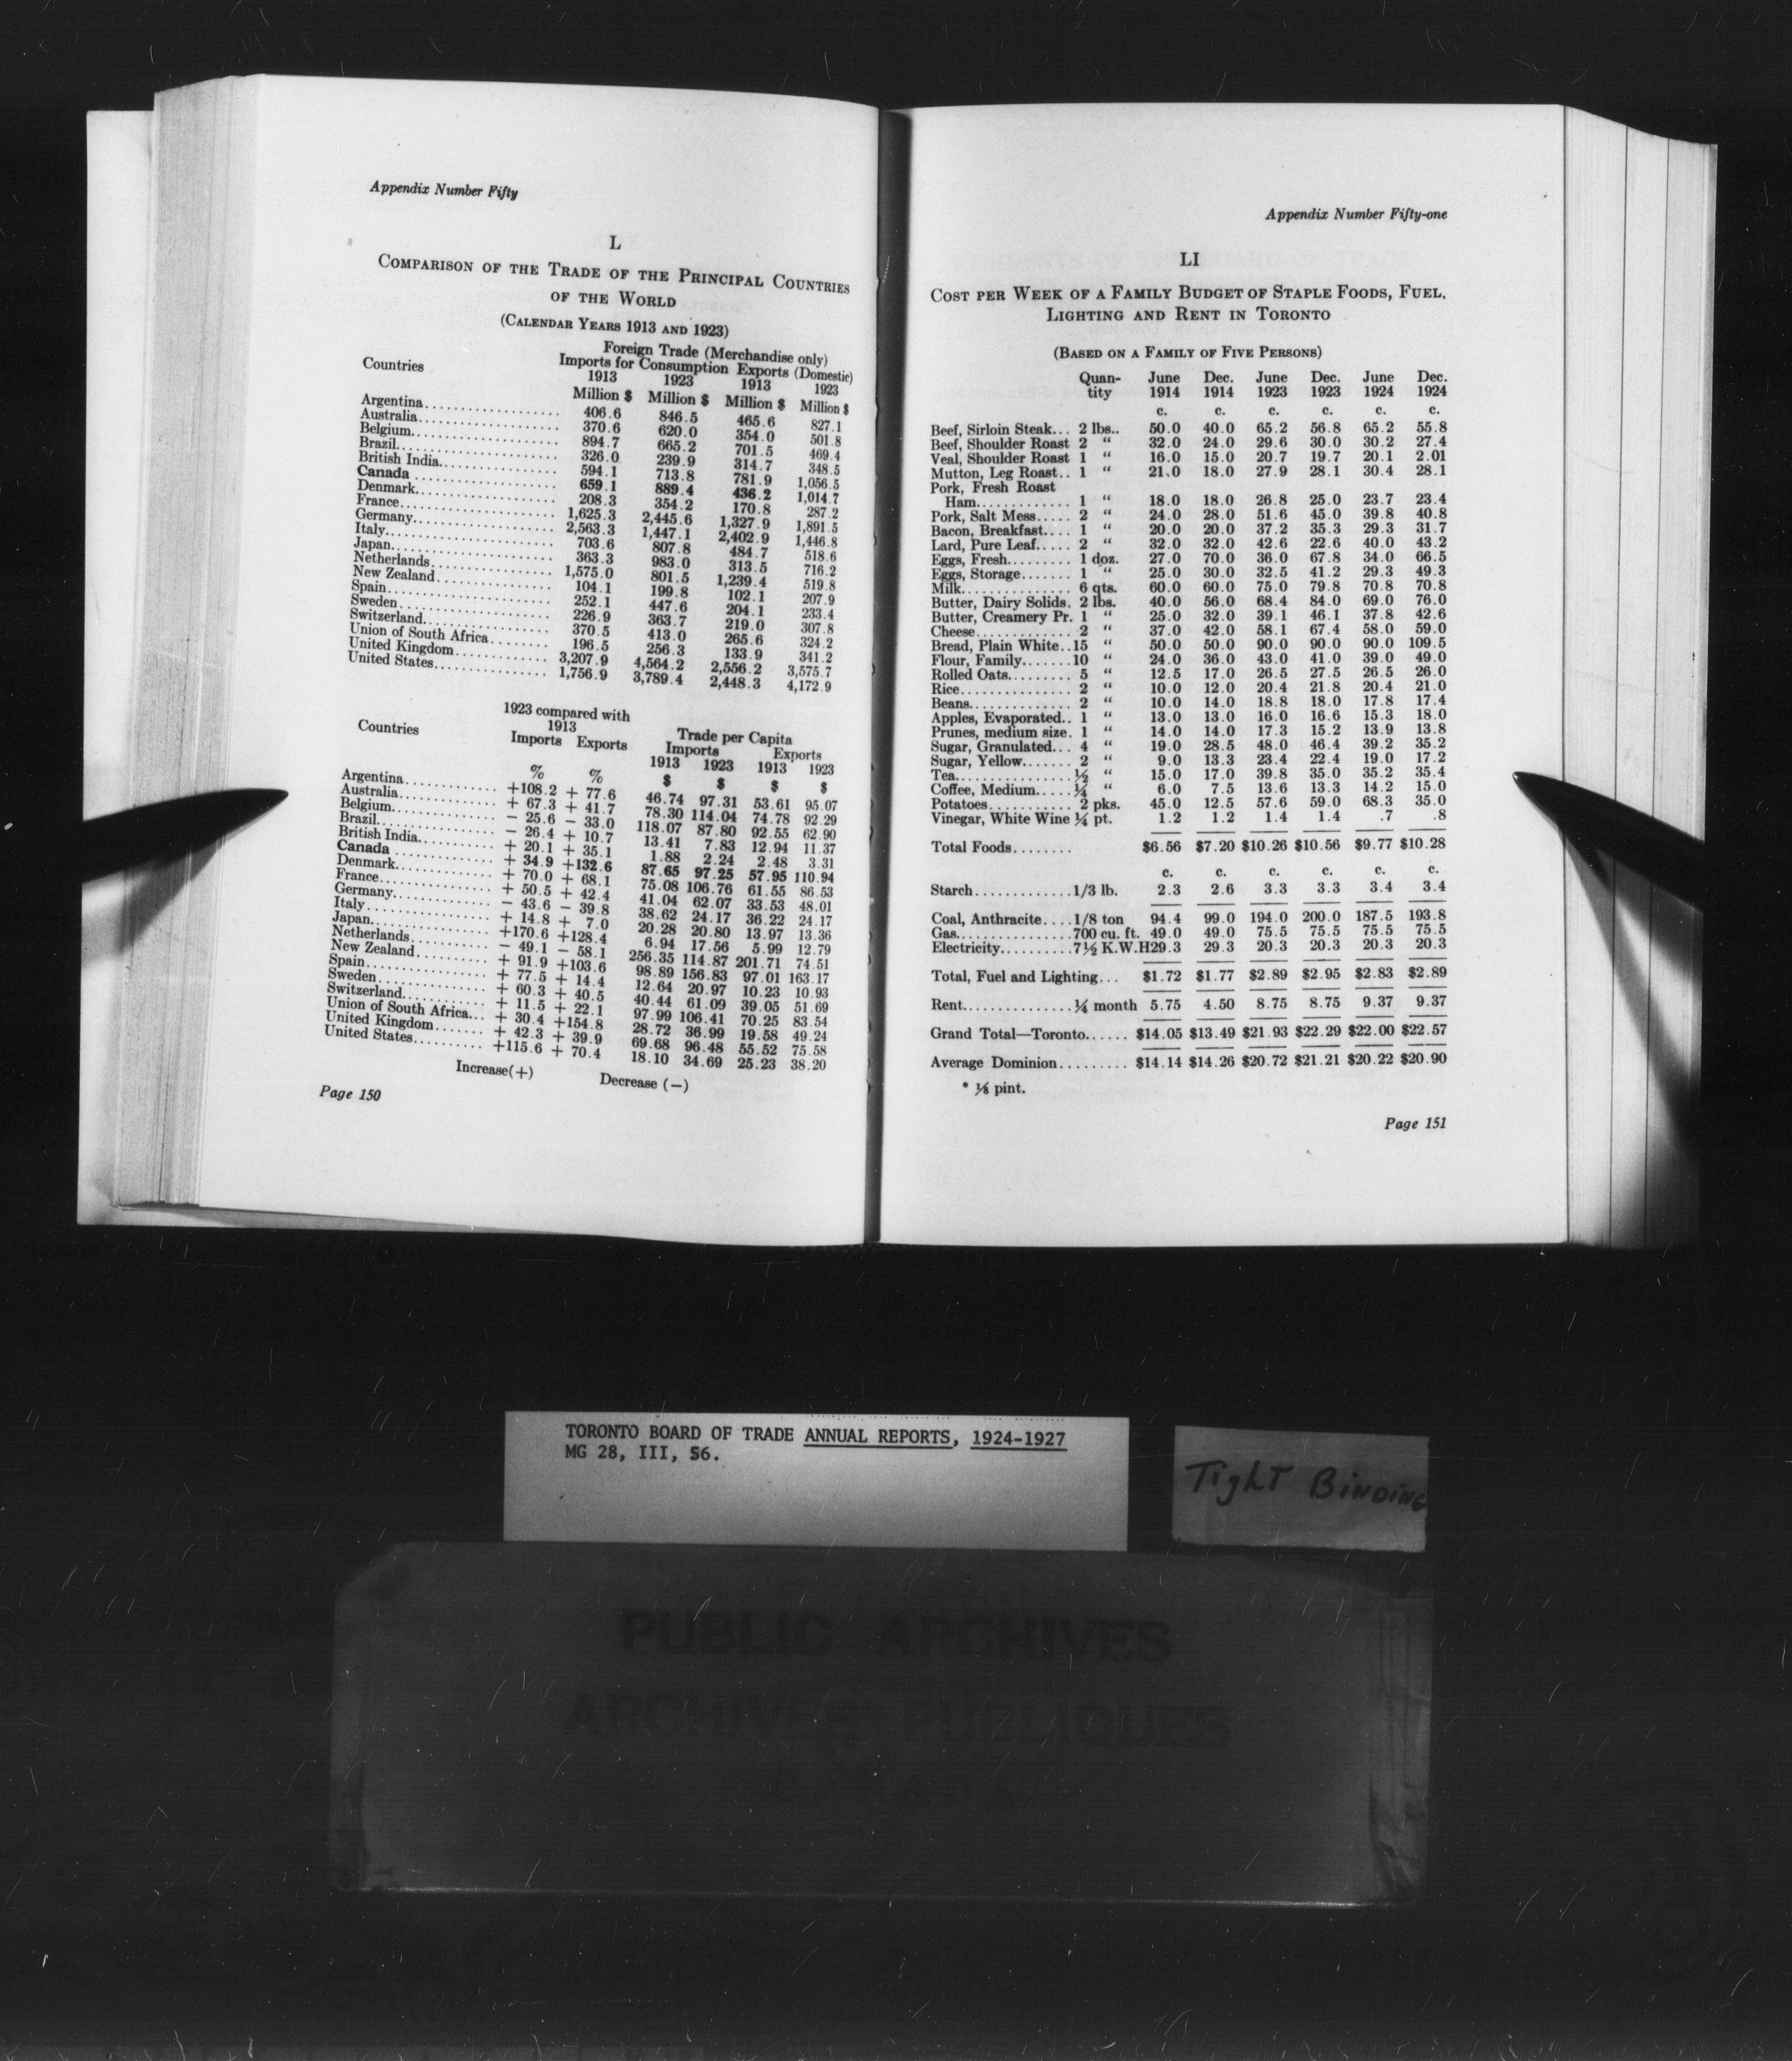 Appendix Number Fifty
L
COMPARISON OF THE TRADE OF THE PRINCIPAL COUNTRIES
OF THE WORLD
(CALENDAR YEARS 1913 AND 1923)
Foreign Trade (Merchandise only)
Countries Imports for Consumption Exports (Domestic)
1913 1923 1913 1923
Million $ Million $ Million $ Million $
Argentina 406.6 846.5 465.6 827.1
Australia 370.6 620.0 354.0 501.8
Belgium 894.7 665.2 701.5 469.4
Brazil 326.0 239.9 314.7 348.5
British India 594.1 713.8 781.9 1,056.5
Canada 659.1 889.4 436.2 1,014.7
Denmark 208.3 354.2 170.8 287.2
France 1,625.3 2,445.6 1,327.9 1,891.5
Germany 2,563.3 1,447.1 2,402.9 1,446.8
Italy 703.6 807.8 484.7 518.6
Japan 363.3 983.0 313.5 716.2
Netherlands 1,575.0 801.5 1,239.4 519.8
New Zealand 104.1 199.8 102.1 207.9
Spain 252.1 447.6 204.1 233.4
Sweden 226.9 363.7 219.0 307.8
Switzerland 370.5 413.0 265.6 324.2
Union of South Africa 196.5 256.3 133.9 341.2
United Kingdom 3,207.9 4,564.2 2,556.2 3,575.7
United States 1,756.9 3,789.4 2,448.3 4,172.9
1923 compared with
1913
Countries Trade per Capita
Imports Exports Imports Exports
1913 1923 1913 1923
% % $ $ $ $
Argentina +108.2 + 77.6 46.74 97.31 53.61 95.07
Australia + 67.3 + 41.7 78.30 114.04 74.78 92.29
Belgium − 25.6 − 33.0 118.07 87.80 92.55 62.90
Brazil − 26.4 + 10.7 13.41 7.83 12.94 11.37
British India + 20.1 + 35.1 1.88 2.24 2.48 3.31
Canada + 34.9 +132.6 87.65 97.25 57.95 110.94
Denmark + 70.0 + 68.1 75.08 106.76 61.55 86.53
France + 50.5 + 42.4 41.04 62.07 33.53 48.01
Germany − 43.6 − 39.8 38.62 24.17 36.22 24.17
Italy + 14.8 + 7.0 20.28 20.80 13.97 13.36
Japan +170.6 +128.4 6.94 17.56 5.99 12.79
Netherlands − 49.1 − 58.1 256.35 114.87 201.71 74.51
New Zealand + 91.9 +103.6 98.89 156.83 97.01 163.17
Spain + 77.5 + 14.4 12.64 20.97 10.23 10.93
Sweden + 60.3 + 40.5 40.44 61.09 39.05 51.69
Switzerland + 11.5 + 22.1 97.99 106.41 70.25 83.54
Union of South Africa + 30.4 +154.8 28.72 36.99 19.58 49.24
United Kingdom + 42.3 + 39.9 69.68 96.48 55.52 75.58
United States +115.6 + 70.4 18.10 34.69 25.23 38.20
Increase(+) Decrease (−)
Page 150
Appendix Number Fifty-one
LI
COST PER WEEK OF A FAMILY BUDGET OF STAPLE FOODS, FUEL,
LIGHTING AND RENT IN TORONTO
(BASED ON A FAMILY OF FIVE PERSONS)
Quan- June Dec. June Dec. June Dec.
tity 1914 1914 1923 1923 1924 1924
c. c. c. c. c. c.
Beef, Sirloin Steak... 2 lbs.. 50.0 40.0 65.2 56.8 65.2 55.8
Beef, Shoulder Roast 2 " 32.0 24.0 29.6 30.0 30.2 27.4
Veal, Shoulder Roast 1 " 16.0 15.0 20.7 19.7 20.1 2.01
Mutton, Leg Roast.. 1 " 21.0 18.0 27.9 28.1 30.4 28.1
Pork, Fresh Roast
Ham 1 " 18.0 18.0 26.8 25.0 23.7 23.4
Pork, Salt Mess..... 2 " 24.0 28.0 51.6 45.0 39.8 40.8
Bacon, Breakfast.... 1 " 20.0 20.0 37.2 35.3 29.3 31.7
Lard, Pure Leaf..... 2 " 32.0 32.0 42.6 22.6 40.0 43.2
Eggs, Fresh......... 1 doz. 27.0 70.0 36.0 67.8 34.0 66.5
Eggs, Storage....... 1 " 25.0 30.0 32.5 41.2 29.3 49.3
Milk 6 qts. 60.0 60.0 75.0 79.8 70.8 70.8
Butter, Dairy Solids. 2 lbs. 40.0 56.0 68.4 84.0 69.0 76.0
Butter, Creamery Pr. 1 " 25.0 32.0 39.1 46.1 37.8 42.6
Cheese 2 " 37.0 42.0 58.1 67.4 58.0 59.0
Bread, Plain White..15 " 50.0 50.0 90.0 90.0 90.0 109.5
Flour, Family.......10 " 24.0 36.0 43.0 41.0 39.0 49.0
Rolled Oats......... 5 " 12.5 17.0 26.5 27.5 26.5 26.0
Rice 2 " 10.0 12.0 20.4 21.8 20.4 21.0
Beans 2 " 10.0 14.0 18.8 18.0 17.8 17.4
Apples, Evaporated.. 1 " 13.0 13.0 16.0 16.6 15.3 18.0
Prunes, medium size. 1 " 14.0 14.0 17.3 15.2 13.9 13.8
Sugar, Granulated... 4 " 19.0 28.5 48.0 46.4 39.2 35.2
Sugar, Yellow....... 2 " 9.0 13.3 23.4 22.4 19.0 17.2
Tea ½ " 15.0 17.0 39.8 35.0 35.2 35.4
Coffee, Medium..... ¼ " 6.0 7.5 13.6 13.3 14.2 15.0
Potatoes 2 pks. 45.0 12.5 57.6 59.0 68.3 35.0
Vinegar, White Wine ¼ pt. 1.2 1.2 1.4 1.4 .7 .8
Total Foods........ $6.56 $7.20 $10.26 $10.56 $9.77 $10.28
c. c. c. c. c. c.
Starch 1/3 lb. 2.3 2.6 3.3 3.3 3.4 3.4
Coal, Anthracite....1/8 ton 94.4 99.0 194.0 200.0 187.5 193.8
Gas 700 cu. ft. 49.0 49.0 75.5 75.5 75.5 75.5
Electricity 7½ K.W.H29.3 29.3 20.3 20.3 20.3 20.3
Total, Fuel and Lighting... $1.72 $1.77 $2.89 $2.95 $2.83 $2.89
Rent ¼ month 5.75 4.50 8.75 8.75 9.37 9.37
Grand Total—Toronto...... $14.05 $13.49 $21.93 $22.29 $22.00 $22.57
Average Dominion......... $14.14 $14.26 $20.72 $21.21 $20.22 $20.90
* ⅛ pint.
Page 151
TORONTO BOARD OF TRADE ANNUAL REPORTS, 1924-1927
MG 28, III, 56.
Tight Binding
PUBLIC ARCHIVES
ARCHIVES PUBLIQUES
CANADA